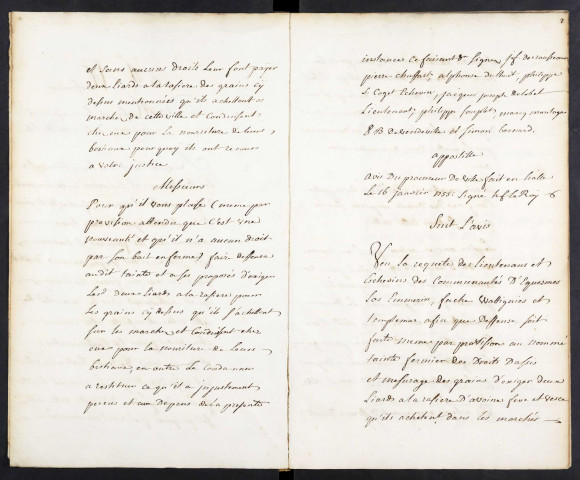 et sans aucuns droits leur font payer
deux liards a la rasiere des grains cy
dessus mentionnées qu'ils achettent au
marché de cette ville et Conduisent
chez eux pour la nourriture de leurs
bestiaux pourquoy ils ont recours
a votre justice
Messieurs
Pour qu'il vous plaise (meme par
provision attendu que C'est une
nouveauté et qu'il n'a aucun droit
par son bail en forme) faire deffense
audit tainte et a ses proposés d'exiger
lesd. deux liards a la rasiere pour
les grains cy dessus qu'ils achettent
sur les marchés et Conduisent chez
eux pour la nouriture de leurs
bestiaux, en outre le Condamner
a restituer ce qu'il a injustement
percus et aux Depens de la presente
2
instance Ce faisant &c. Signé
pierre Chuffart, alphonse philippe
L. Coget Echevin, jacques joseph
Lieutenant, philippe
P B de Vendeville et Simon
appostille
Avis Du procureur de Ville fait en halle
Le 16 janvier 1755. Signé h f le Roy
Suit L'avis
Veu la requete des Lieutenans et
Echevins des Communautés D'Equermes
Los Emmerin, fache Wattignies et
templemar afin que Deffense soit
faite meme par provision au nommé
tainte fermier des Droits D'assis
et mesurage des grains d'exiger deux
Liards a la rasiere D'avoine feve et vesce
qu'ils achetent dans les marchés